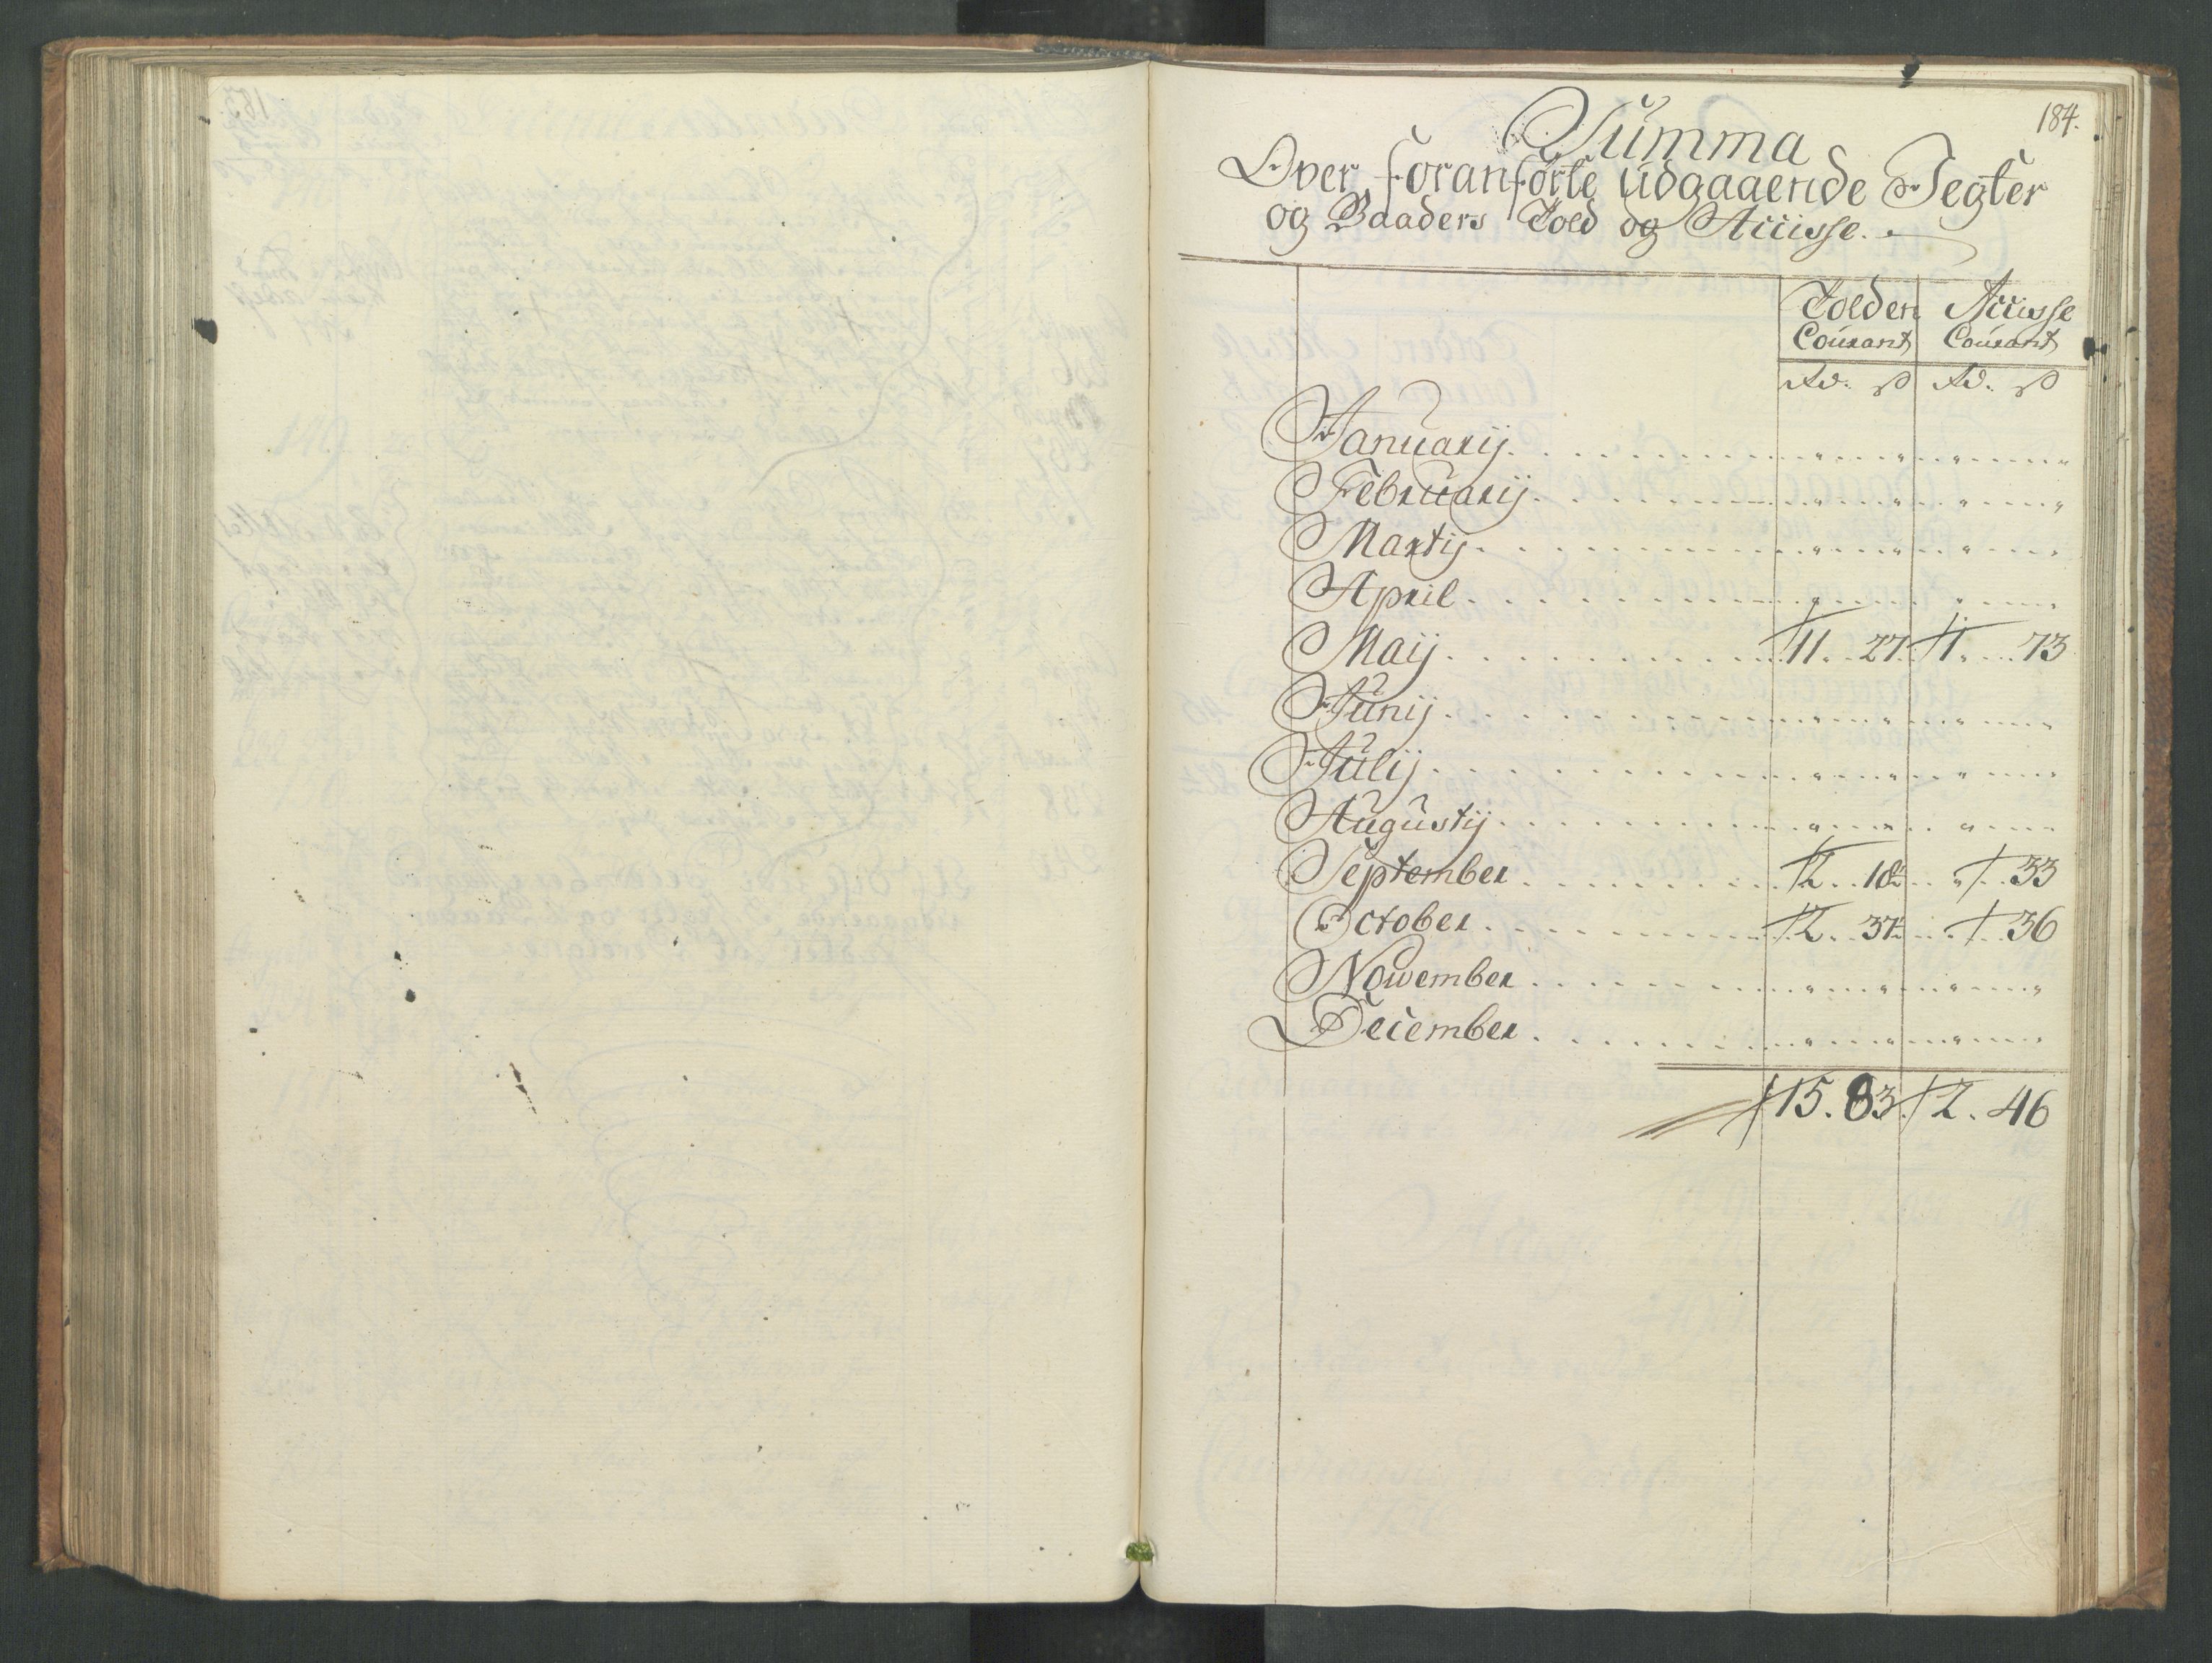 184.
Summa
Over foranførte udgaaende Jegter
og Baaders Told og Accisse.
Tolden Accisse
Courant Courant
Rd. ß Rd. ß
Januarij
Februarij
Martij
April
Maij 11. 27. 1. 73
Junij
Julij
Augustij
September 2. 18½ 33
October 2. 37½ 36
Nowember
December
15. 83. 2. 46